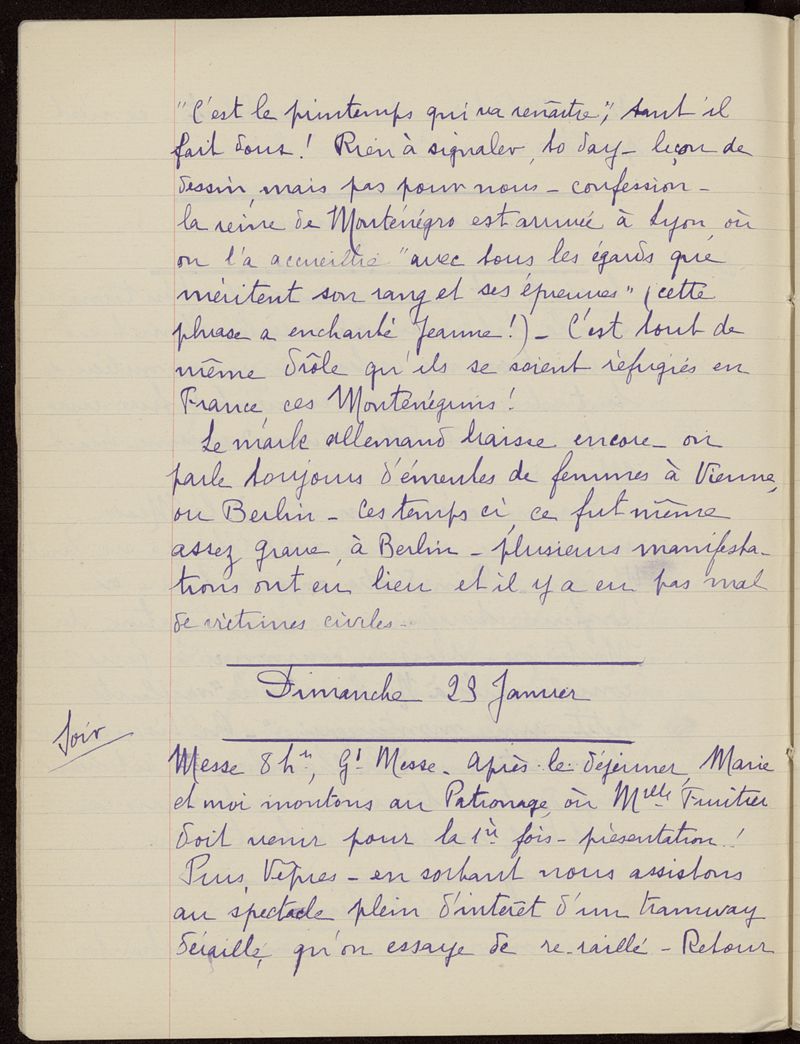 "C'est le printemps qui va renaître", tant il
fait doux! Rien à signaler, to day - leçon de
dessin, mais pas pour nous - confession -
la reine de Monténégro est arrivée à Lyon, où
on l'a accueillie "avec tous les égards que
méritent son rang et ses épreuves" (cette
phrase a enchanté Jeanne!) - C'est tout de
même drôle qu'ils se soient réfugiés en
France ces Monténégrins!
Le mark allemand baisse encore - on
parle toujours d'émeutes de femmes à Vienne,
ou Berlin - Ces temps ci, ce fut même
assez grave, à Berlin - plusieurs manifesta-
tions ont eu lieu et il y a eu pas mal
de victimes civiles -
Dimanche 23 Janvier
Soir
Messe 8 hres, Gd Messe. Après le déjeuner, Marie
et moi montons au Patronage, où Melle Fruitier
doit venir pour la 1ère fois - présentation!
Puis, Vêpres - en sortant nous assistons
au spectacle plein d'intérêt d'un tramway
déraillé, qu'on essaye de re-raillé - Retour